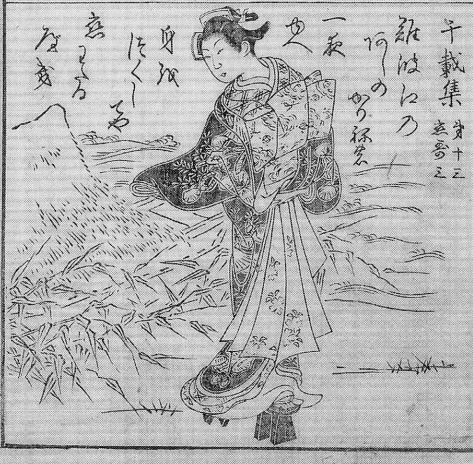 千載集
第十三
恋哥三
難波江の
あしの
かりねの
一夜
ゆへ
身を
つくし
てや
恋わたる